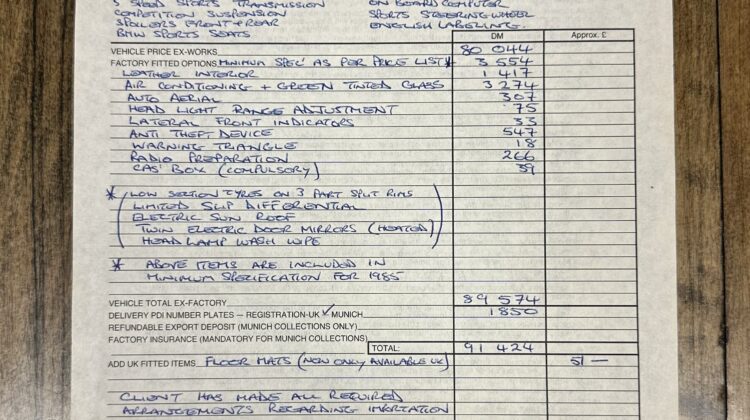 5 SPEED SPORTS TRANSMISSION ON BOARD COMPUTER
COMPETITION SUSPENSION SPORTS STEERING WHEEL
SPOILERS FRONT + REAR ENGLISH LABELING.
BMW SPORTS SEATS
DM Approx. £
VEHICLE PRICE EX-WORKS 80 044
FACTORY FITTED OPTIONS MINIMUM SPEC' AS PER PRICE LIST * 3 554
LEATHER INTERIOR 1 417
AIR CONDITIONING + GREEN TINTED GLASS 3 274
AUTO AERIAL 307
HEAD LIGHT RANGE ADJUSTMENT 75
LATERAL FRONT INDICATORS 33
ANTI THEFT DEVICE 547
WARNING TRIANGLE 18
RADIO PREPARATION 266
GAS' BOX (COMPULSORY) 39
* LOW SECTION TYRES ON 3 PART SPLIT RIMS
LIMITED SLIP DIFFERENTIAL
ELECTRIC SUN ROOF
TWIN ELECTRIC DOOR MIRRORS (HEATED)
HEAD LAMP WASH WIPE
* ABOVE ITEMS ARE INCLUDED IN
MINIMUM SPECIFICATION FOR 1985
VEHICLE TOTAL EX-FACTORY 89 574
DELIVERY PDI NUMBER PLATES — REGISTRATION-UK ✓ MUNICH 1850
REFUNDABLE EXPORT DEPOSIT (MUNICH COLLECTIONS ONLY)
FACTORY INSURANCE (MANDATORY FOR MUNICH COLLECTIONS)
TOTAL: 91 424
ADD UK FITTED ITEMS FLOOR MATS (NOW ONLY AVAILABLE UK) 51 —
CLIENT HAS MADE ALL REQUIRED
ARRANGEMENTS REGARDING IMPORTATION